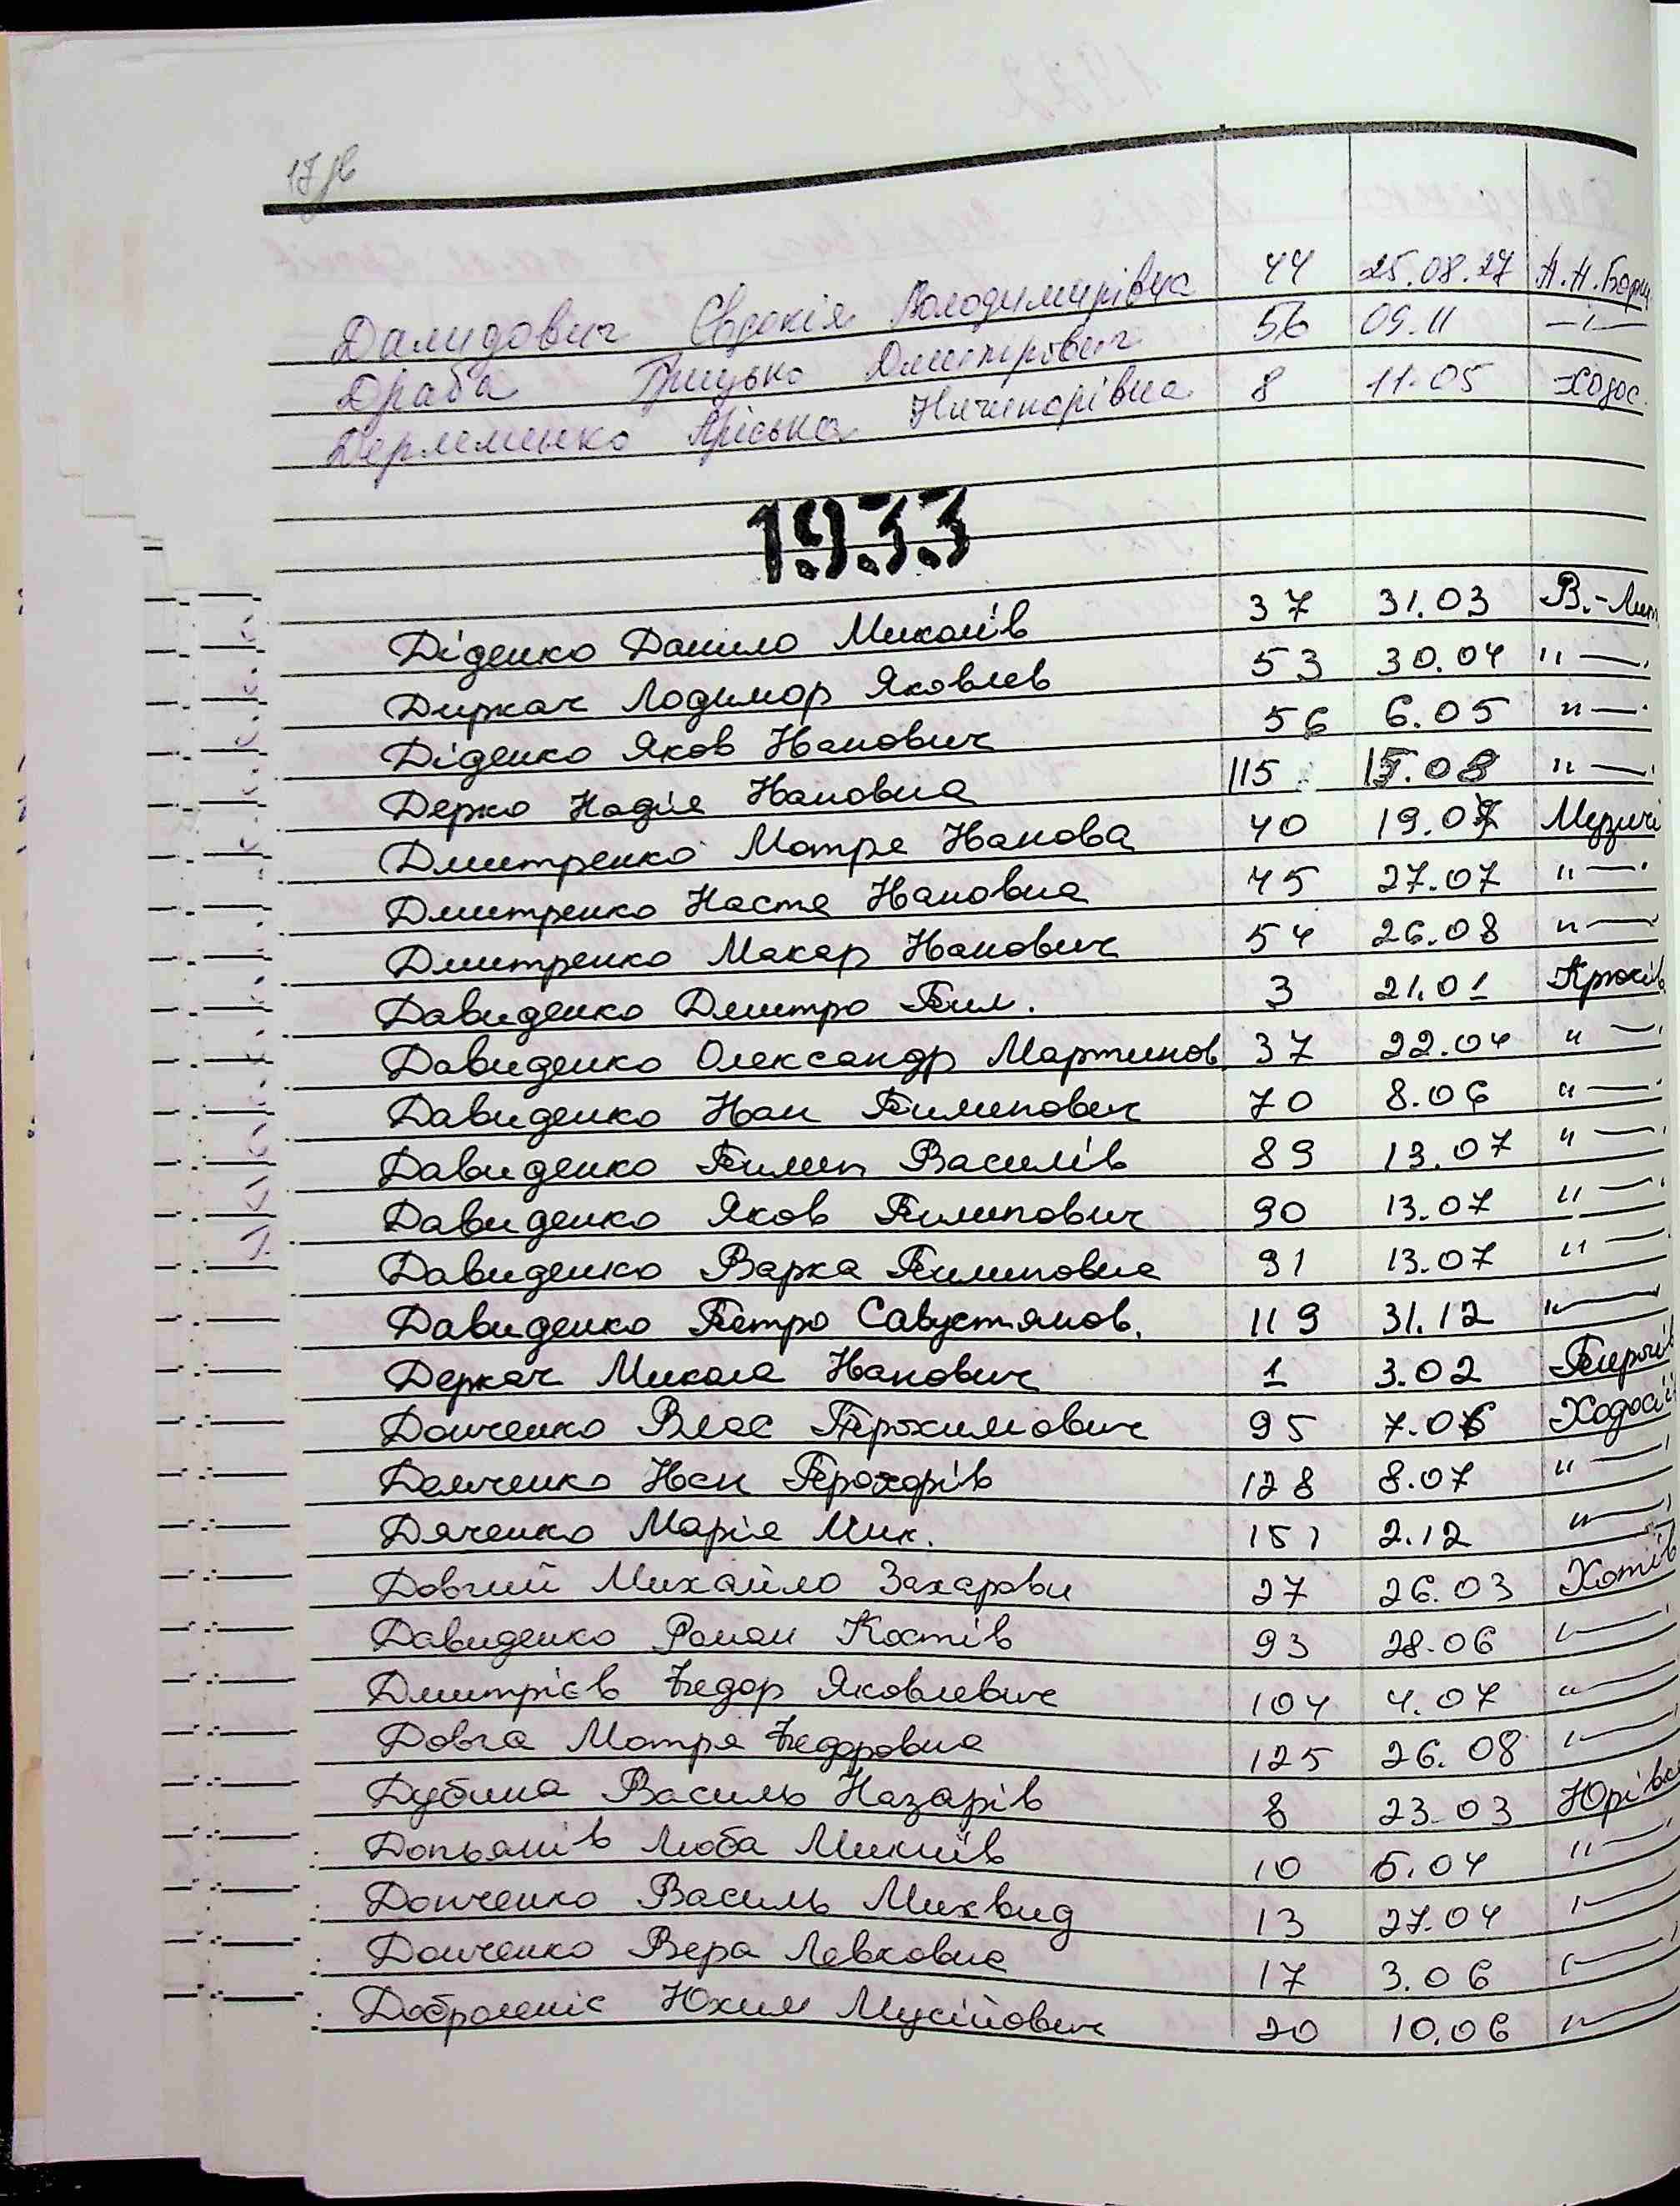 Далидович Євдокія Володимирівна 44 25.08.27 Н.Н.Борщ
Драба Грицько Дмитрович 56 09.11 -"-
Дерлеменко Пріська Ничипорівна 8 11.05 Ходос.
1933
Діденко Данило Миколів 37 31.03 В.-Лит
Диркач Лодимор Яковлев 53 30.04 "—
Діденко Яков Іванович 56 6.05 "—
Дерко Надія Івановна 115 15.08 "—
Дмитренко Мотря Іванова 40 19.07 Музичі
Дмитренко Настя Івановна 45 27.07 "—
Дмитренко Макар Іванович 54 26.08 "—
Давиденко Дмитро Пил. 3 21.01 Крюків
Давиденко Олександр Мартинов. 37 22.04 "—
Давиденко Іван Пилипович 70 8.06 "—
Давиденко Пилип Василів 89 13.07 "—
Давиденко Яков Пилипович 90 13.07 "—
Давиденко Варка Пилиповна 91 13.07 "—
Давиденко Петро Савустянов. 119 31.12 "—
Деркач Микола Іванович 1 3.02 Пирогів
Донченко Влас Трохимович 95 7.06 Ходосів
Демченко Іван Прохорів 128 8.07 "—
Дяченко Марія Мик. 151 2.12 "—
Довгий Михайло Захарови 27 26.03 Хотів
Давиденко Роман Костів 93 28.06 "—
Дмитрієв Федор Яковлевич 104 4.07 "—
Довга Мотря Федоровна 125 26.08 "—
Дубина Василь Назарів 8 23.03 Юрівк
Допьянів Люба Микиїв 10 5.04 "—
Донченко Василь Михвид 13 27.04 "—
Донченко Вера Левковна 17 3.06 "—
Доброніс Юхим Мусійович 20 10.06 "—